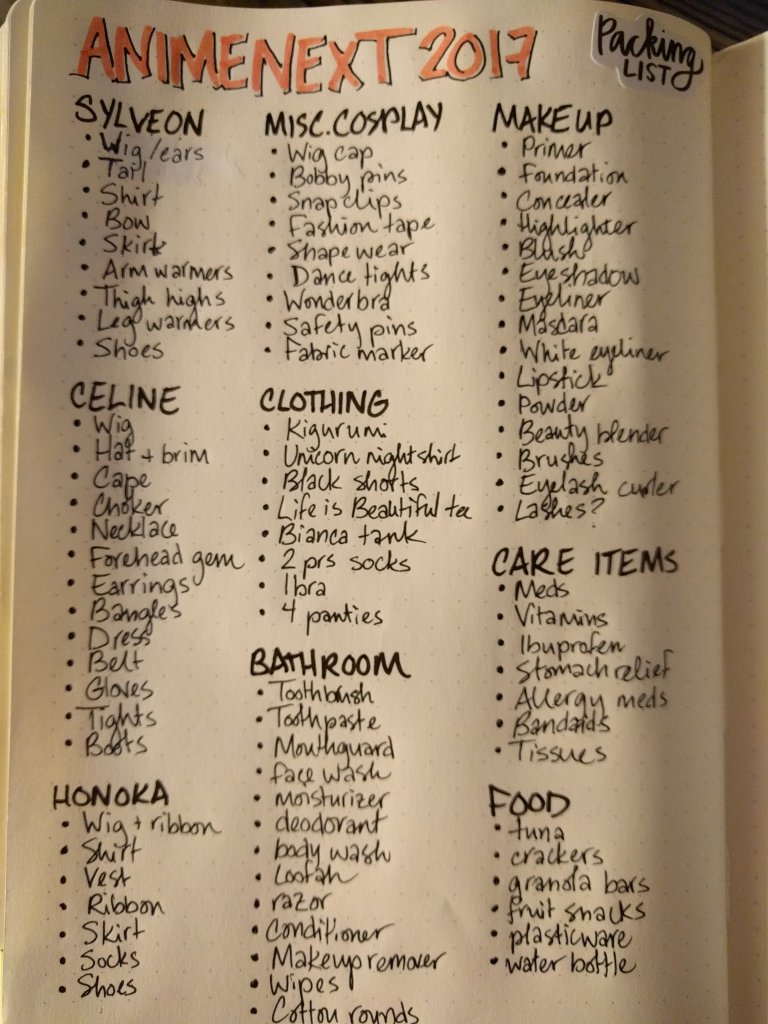 ANIMENEXT 2017
Packing
LIST
SYLVEON
• Wig/ears
• Tail
• Shirt
• Bow
• Skirt
• Arm warmers
• Thigh highs
• Leg warmers
• Shoes
CELINE
• Wig
• Hat + brim
• Cape
• Choker
• Necklace
• Forehead gem
• Earrings
• Bangles
• Dress
• Belt
• Gloves
• Tights
• Boots
HONOKA
• Wig + ribbon
• Shirt
• Vest
• Ribbon
• Skirt
• Socks
• Shoes
MISC. COSPLAY
• Wig cap
• Bobby pins
• Snap clips
• Fashion tape
• Shape wear
• Dance tights
• Wonderbra
• Safety pins
• Fabric marker
CLOTHING
• Kigurumi
• Unicorn nightshirt
• Black shorts
• Life is Beautiful tee
• Bianca tank
• 2 prs socks
• 1 bra
• 4 panties
BATHROOM
• Toothbrush
• Toothpaste
• Mouthguard
• face wash
• moisturizer
• deodorant
• body wash
• Loofah
• razor
• Conditioner
• Makeup remover
• Wipes
• Cotton rounds
MAKEUP
• Primer
• Foundation
• Concealer
• Highlighter
• Blush
• Eyeshadow
• Eyeliner
• Mascara
• White eyeliner
• Lipstick
• Powder
• Beauty blender
• Brushes
• Eyelash curler
• Lashes?
CARE ITEMS
• Meds
• Vitamins
• Ibuprofen
• Stomach relief
• Allergy meds
• Bandaids
• Tissues
FOOD
• tuna
• crackers
• granola bars
• fruit snacks
• plasticware
• water bottle